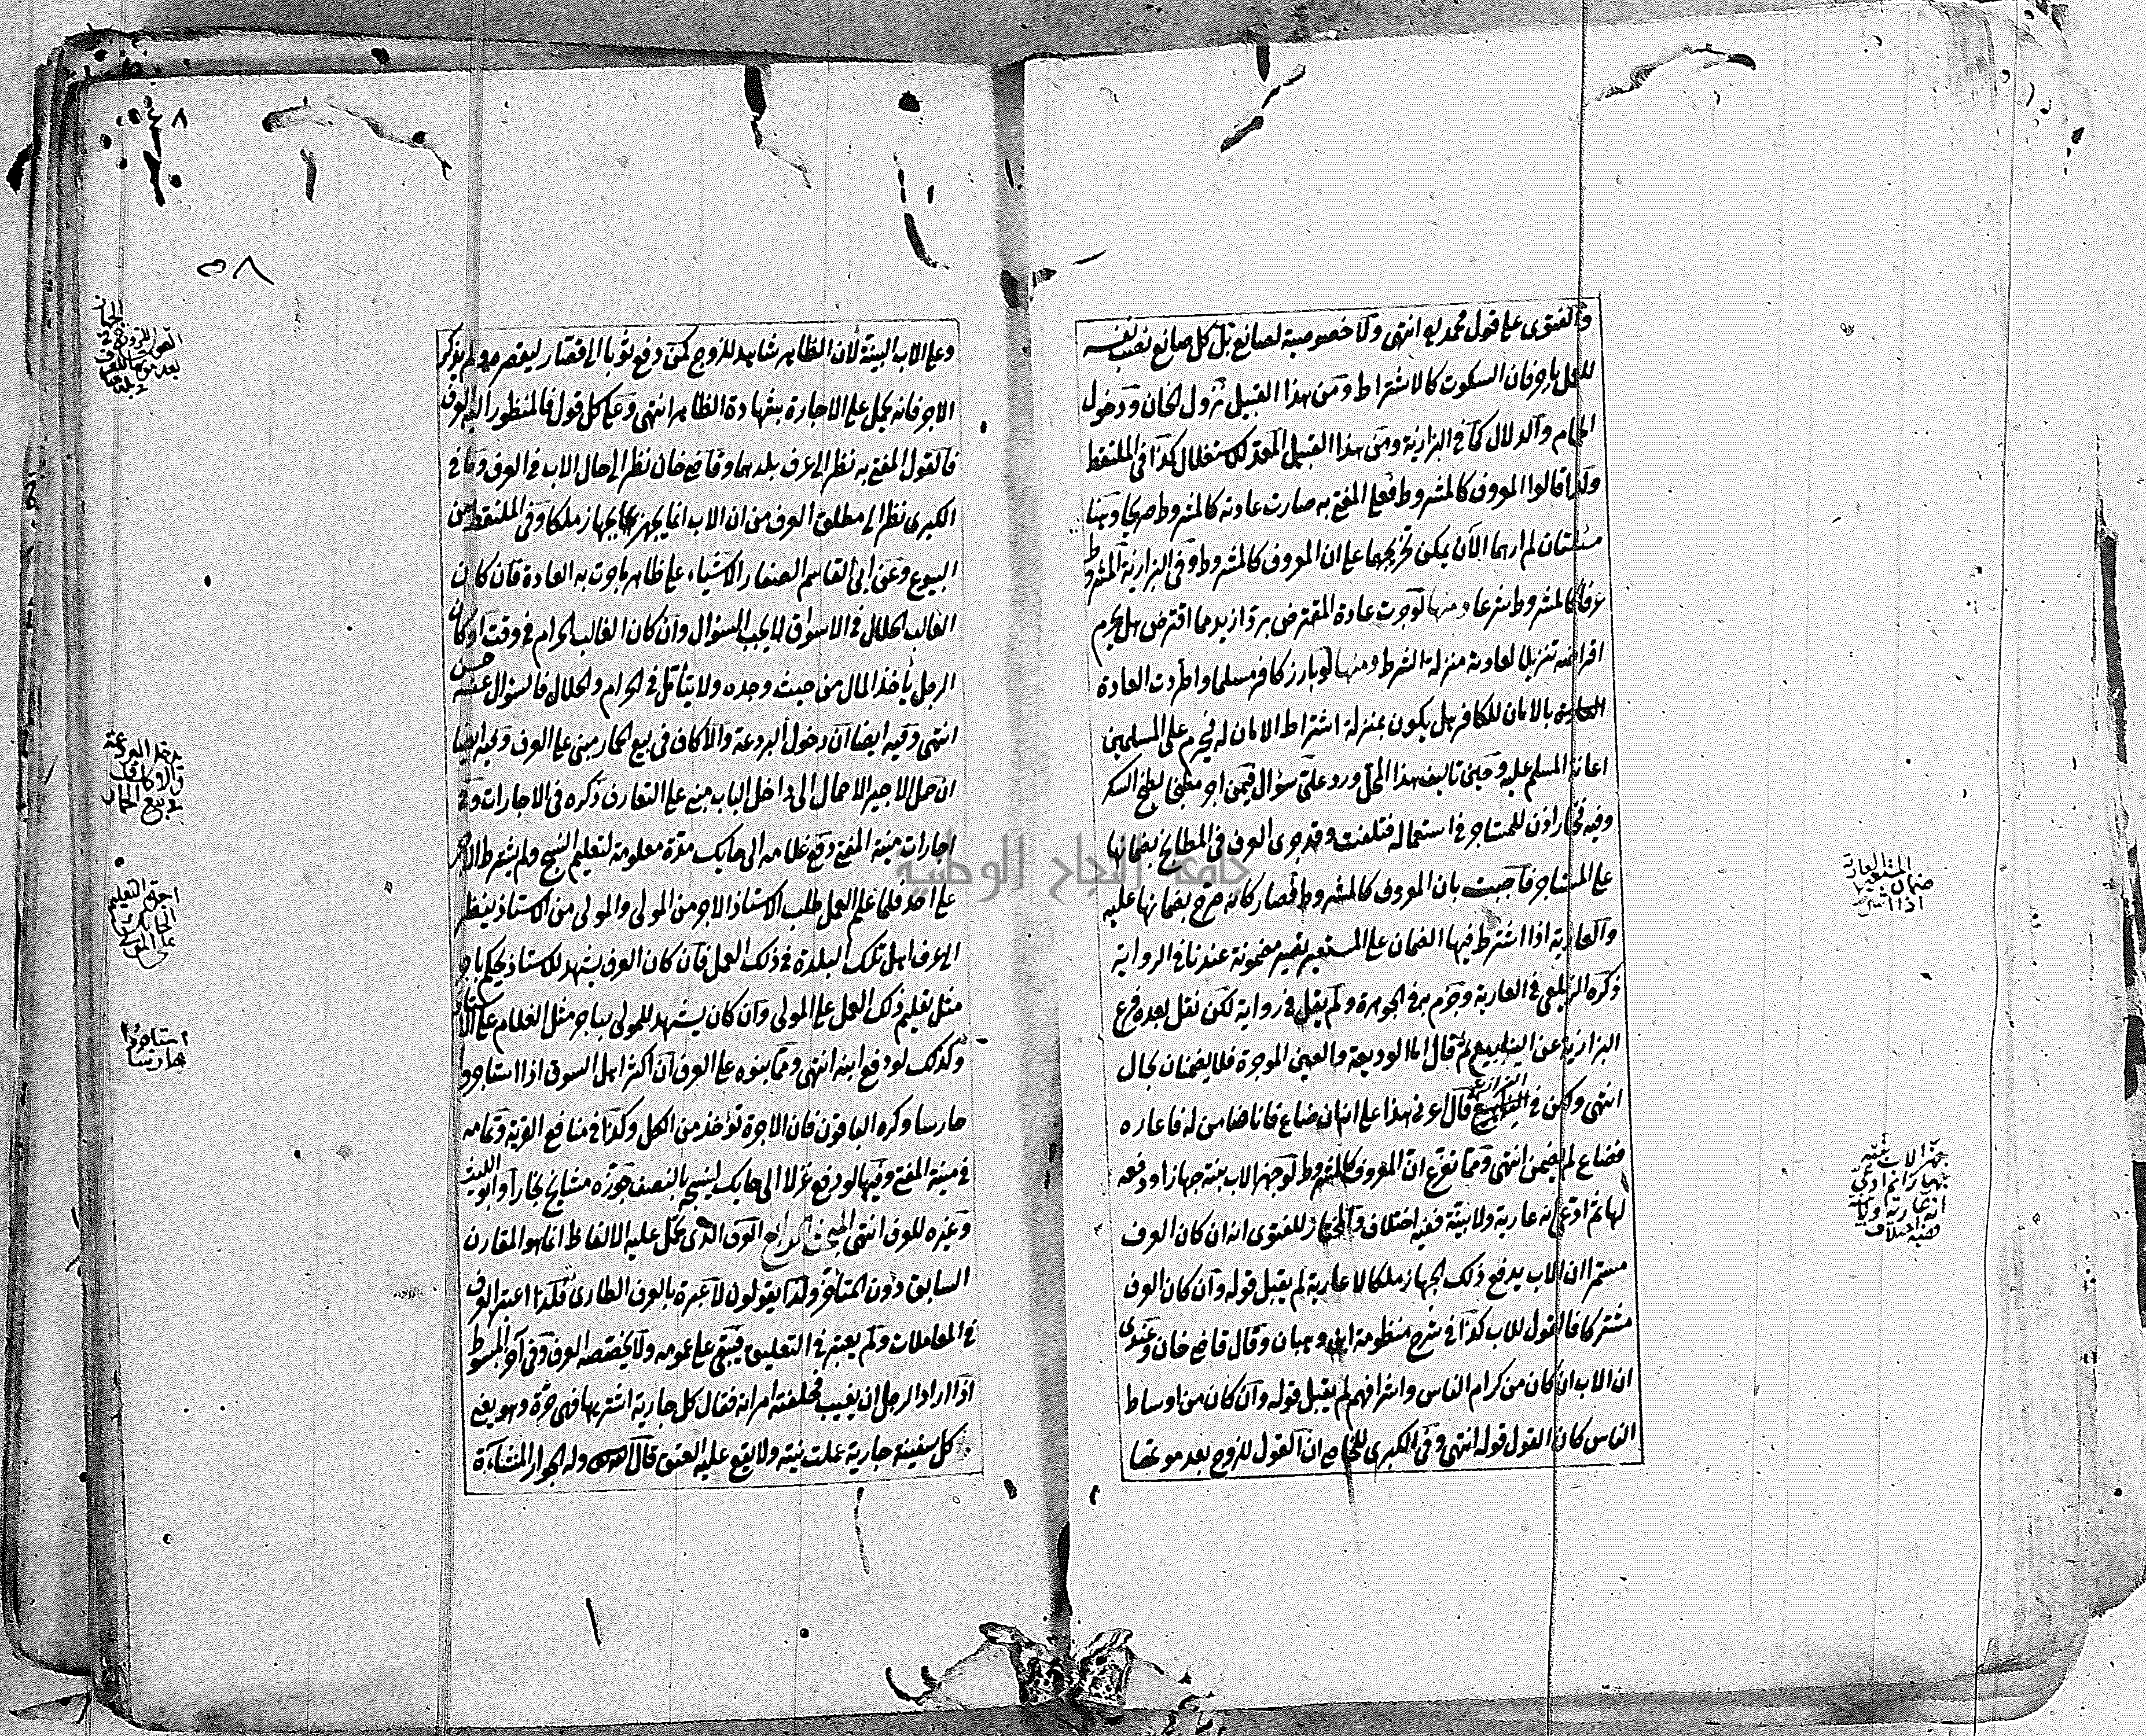 والفتوى على قول محمد به انتهى ولا خصوصية لصانع بل كل صانع نصب نفسه
للعمل باجر فان السكوت كالاشتراط ومن هذا القبيل نزول الخان ودخول
الحمام والدلال كما في البزازية ومن هذا القبيل المعد للاستغلال كذا في الملتقط
ولذا قالوا المعروف كالمشروط فعلى المفتى به صارت عادته كالمشروط صريحا وهنا
مسئلتان لم ارهما الآن يمكن تخريجهما على ان المعروف كالمشروط وفي البزازية المشروط
عرفا كالمشروط شرعا ومنها لو جرت عادة المقترض برد ازيد مما اقترض هل يحرم
اقراضه تنزيلا لعادته منزلة الشرط ومنها لو بارز كافر مسلما واطردت العادة
بالامان للكافر هل يكون بمنزلة اشتراط الامان له فيحرم على المسلمين
اعانة المسلم عليه وحين تاليف هذا المحل ورد على سؤال فيمن اجر مطبخا لطبخ السكر
وفيه فخار اذن للمستاجر في استعماله فتلفت وقد جرى العرف في المطابخ بضمانها
على المستاجر فاجبت بان المعروف كالمشروط فصار كانه صرح بضمانها عليه
والعارية اذا اشترط فيها الضمان على المستعير تصير مضمونة عندنا في الرواية
ذكره الزيلعي في العارية وجزم به في الجوهرة ولم يقل في رواية لكن نقل بعده فرع
البزازية عن الينابيع ثم قال اما الوديعة والعين الموجرة فلا يضمنان بحال
انتهى ولكن في البزازية قال اعرني هذا على انه ان ضاع فانا ضامن له فاعاره
فضاع لم يضمن انتهى ومما تفرع ان المعروف كالمشروط لو جهز الاب بنته جهازا ودفعه
لها ثم ادعى انه عارية ولا بينة ففيه اختلاف والمختار للفتوى انه ان كان العرف
مستمرا ان الاب يدفع ذلك الجهاز ملكا لا عارية لم يقبل قوله وان كان العرف
مشتركا فالقول للاب كذا في شرح منظومة ابن وهبان وقال قاضي خان وعندى
ان الاب ان كان من كرام الناس واشرافهم لم يقبل قوله وان كان من اوساط
الناس كان القول قوله انتهى وفي الكبرى للخاصي ان القول للزوج بعد موتها
المستعارة
اذا
جهز الاب بنته
بجهاز ثم ادعى
انه عارية ولا بينة
ففيه اختلاف
٥٨
وعلى الاب البينة لان الظاهر شاهد للزوج كمن دفع ثوبا الى قصار ليقصره ولم يذكر
الاجر فانه يحمل على الاجارة بشهادة الظاهر انتهى وعلى كل قول فالمنظور اليه العرف
فالقول المفتى به نظر الى عرف بلدهما وقاضي خان نظر الى حال الاب في العرف وما في
الكبرى نظر الى مطلق العرف من ان الاب انما يجهز بجهاز ملكا وفي الملتقط من
البيوع وعن ابي القاسم الصفار الاشياء على ظاهر ما جرت به العادة فان كان
الغالب الحلال في الاسواق لا يجب السؤال وان كان الغالب الحرام في وقت او كان
الرجل يأخذ المال من حيث وجده ولا يتأمل في الحرام والحلال فالسؤال عنه حسن
انتهى وفيه ايضا ان دخول البردعة والاكاف في بيع الحمار مبني على العرف وفيه ايضا
ان حمل الاجير الاحمال الى داخل الباب مبني على التعارف ذكره في الاجارات وفي
اجارات منية المفتي دفع غلامه الى حايك مدة معلومة لتعليم النسج ولم يشترط الاجر
على احد فلما علم العمل طلب الاستاذ الاجر من المولى والمولى من الاستاذ ينظر
الى عرف اهل تلك البلدة في ذلك العمل فان كان العرف يشهد للاستاذ يحكم باجر
مثل تعليم ذلك العمل على المولى وان كان يشهد للمولى فباجر مثل الغلام على الاستاذ
وكذلك لو دفع ابنه انتهى ومما بنوه على العرف ان اكثر اهل السوق اذا استاجروا
حارسا وكره الباقون فان الاجرة تؤخذ من الكل وكذا في منافع القرية وتمامه
في منية المفتي وفيها لو دفع غزلا الى حايك لينسج بالنصف جوزه مشايخ بخارا وابو الليث
وغيره للعرف انتهى المبحث الرابع العرف الذى تحمل عليه الالفاظ انما هو المقارن
السابق دون المتاخر ولذا يقولون لا عبرة بالعرف الطارى فلذا اعتبر العرف
في المعاملات ولم يعتبر في التعليق فيبقى على عمومه ولا يخصصه العرف وفي آخر المبسوط
اذا اراد الرجل ان يغيب فحلفته امرأته فقال كل جارية اشتريها فهي حرة وهو يعني
كل سفينة جارية عملت نيته ولا يقع عليه العتق قال الله وله الجوار المنشآت
القول للزوج في الجهاز
بعد موتها
يدخل البردعة
والاكاف
في بيع الحمار
اجرة التعليم
على المولى
استاجروا
حارسا